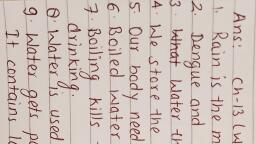 Ans: Ch-13 (W
1. Rain is the m
2. Dengue and
3. What Water th
4. We store the
5. Our body need
6. Boiled Water
7. Boiling kills
drinking.
8. Water is used
9. Water gets po
It contains